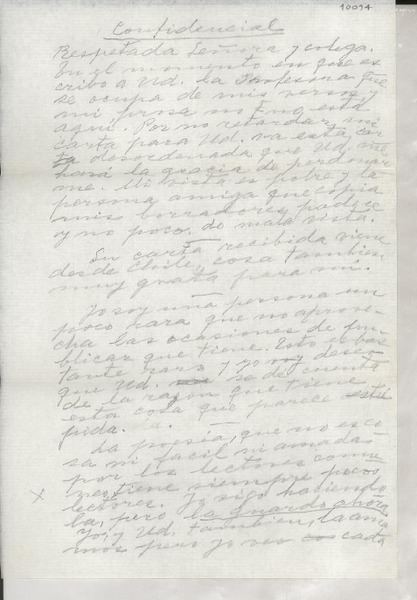 10014
Confidencial
Respetada Señora y colega.
En el momento en que es-
cribo a Ud. la Profesora que
se ocupa de mis versos y
mi prosa no Eng. está
aquí. Por no retardar mi
carta para Ud. va esta car-
ta desordenada que Ud. me
hará la gracia de perdonar
me. Mi vista es pobre y la
persona amiga que copia
mis borradores padece
y no poco, de mala vista.
Su carta recibida viene
desde Chile, cosa también
muy grata para mí.
Yo soy una persona un
poco rara que no aprove-
cha las ocasiones de pu-
blicar que tiene. Esto es bas-
tante raro y yo deseo
que Ud. se dé cuenta
de la razón que tiene
esta cosa que parece estú
pida.
La poesía, que no es co
sa ni fácil ni amada
por los lectores
tiene siempre pocos
x lectores. Yo sigo haciendo
la, pero la guardo ahora
Yo, y Ud. también, la ama
mos pero yo veo cada